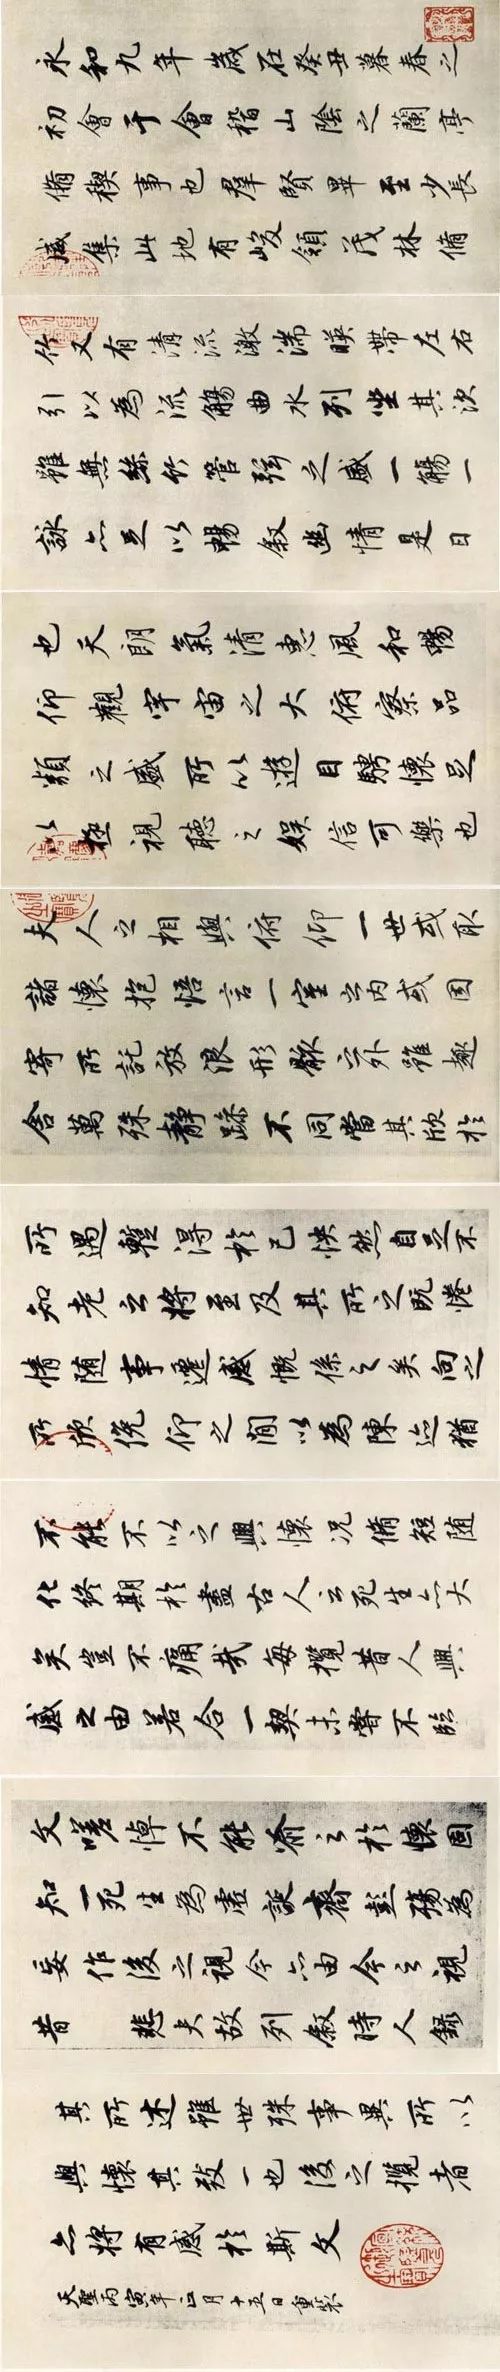 永和九年歲在癸丑暮春之
初會于會稽山陰之蘭亭
脩稧事也群賢畢至少長
咸集此地有峻領茂林脩
竹又有清流激湍暎帶左右
引以為流觴曲水列坐其次
雖無絲竹管弦之盛一觴一
詠亦足以暢敘幽情是日
也天朗氣清惠風和暢
仰觀宇宙之大俯察品
類之盛所以遊目騁懷足
以極視聽之娛信可樂也
夫人之相與俯仰一世或取
諸懷抱悟言一室之內或因
寄所託放浪形骸之外雖趣
舍萬殊靜躁不同當其欣於
所遇蹔得於己怏然自足不
知老之將至及其所之既惓
情隨事遷感慨係之矣向之
所欣俛仰之間以為陳迹猶
不能不以之興懷況脩短隨
化終期於盡古人云死生亦大
矣豈不痛哉每攬昔人興
感之由若合一契未嘗不臨
文嗟悼不能喻之於懷固
知一死生為虛誕齊彭殤為
妄作後之視今亦由今之視
昔悲夫故列敘時人錄
其所述雖世殊事異所以
興懷其致一也後之攬者
亦將有感於斯文
天聖丙寅年正月十五日重裝